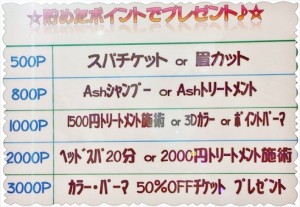 ☆貯めたポイントでプレゼント♪☆
500P スパチケット or 眉カット
800P Ashシャンプー or Ashトリートメント
1000P 1500円トリートメント施術 or 3Dカラー or ポイントパーマ
2000P ヘッドスパ20分 or 2000円トリートメント施術
3000P カラー・パーマ 50%OFFチケット プレゼント